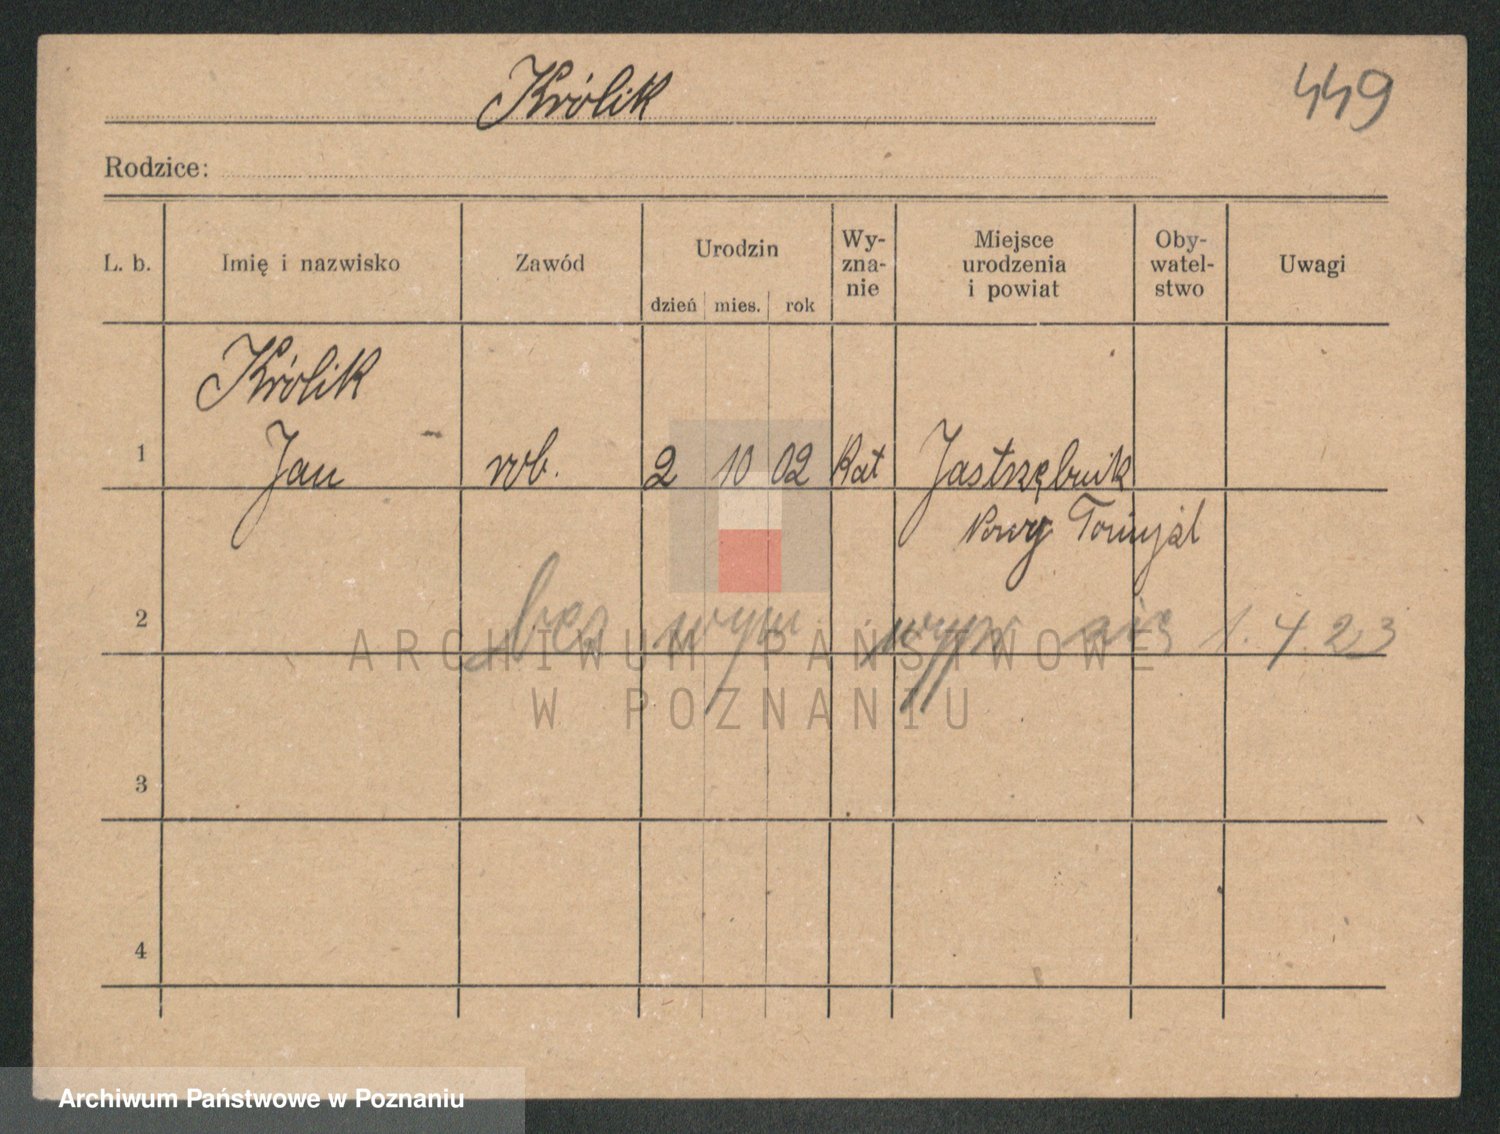 Królik
449
Rodzice:
L. b. Imię i nazwisko Zawód Urodzin dzień mies. rok Wy-zna-nie Miejsce urodzenia i powiat Oby-watel-stwo Uwagi
Królik
1 Jan rob. 2 10 02 Kat Jastrzębnik
Nowy Tomyśl
2 bez wym 1. 4 23
ARCHIWUM PAŃSTWOWE
W POZNANIU
3
4
Archiwum Państwowe w Poznaniu